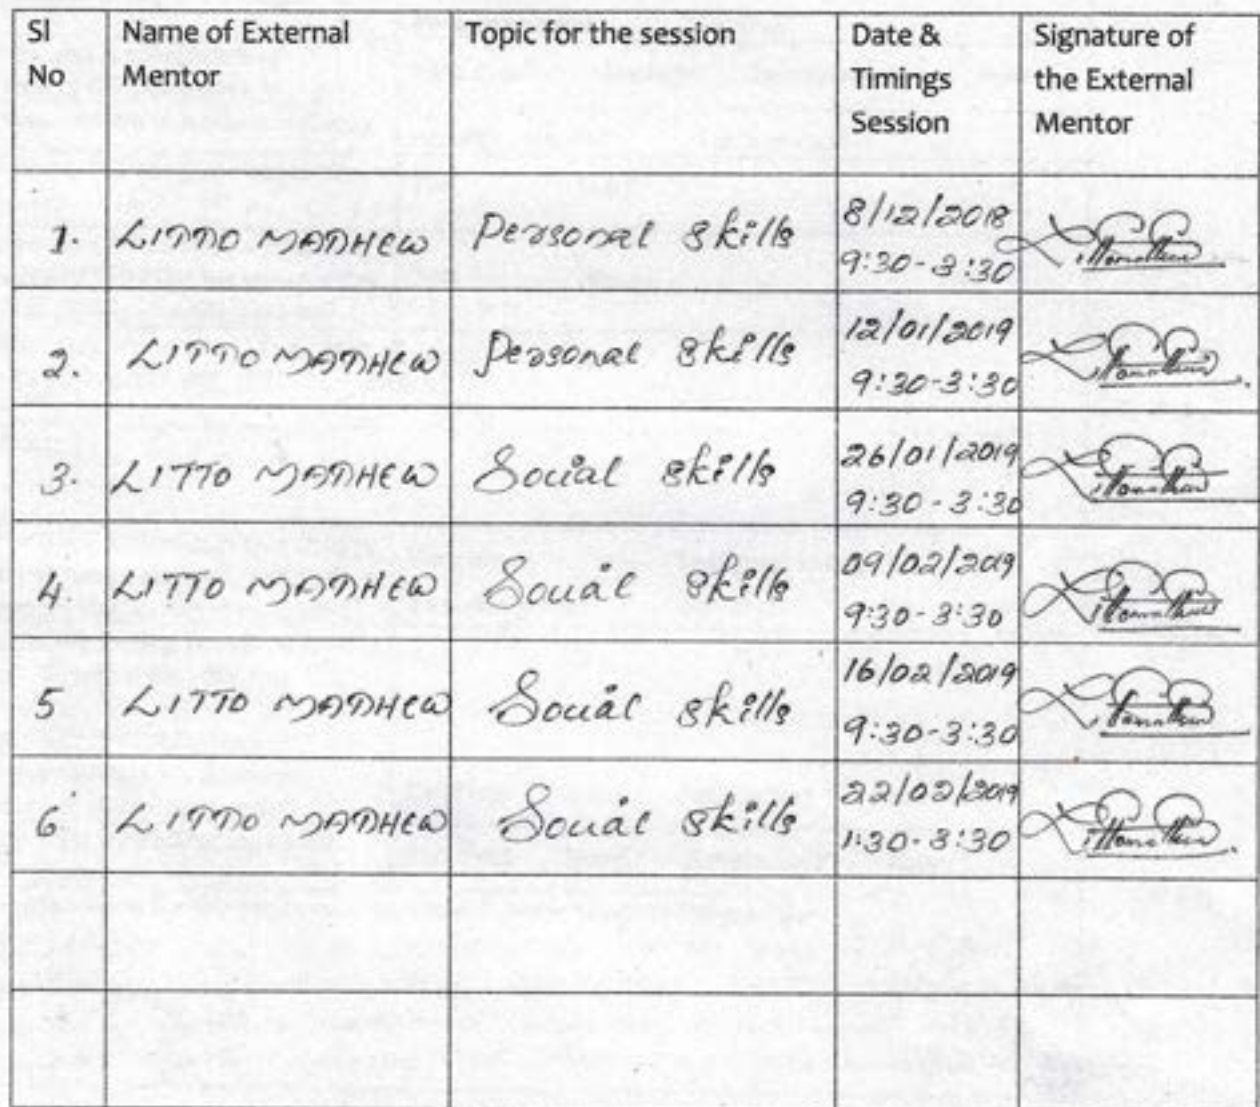 Sl No Name of External Mentor Topic for the session Date & Timings Session Signature of the External Mentor
1. LITTO MATHEW Personal skills 8/12/2018 9:30-3:30
2. LITTO MATHEW Personal skills 12/01/2019 9:30-3:30
3. LITTO MATHEW Social skills 26/01/2019 9:30-3:30
4. LITTO MATHEW Social skills 09/02/2019 9:30-3:30
5 LITTO MATHEW Social skills 16/02/2019 9:30-3:30
6 LITTO MATHEW Social skills 22/02/2019 1:30-3:30